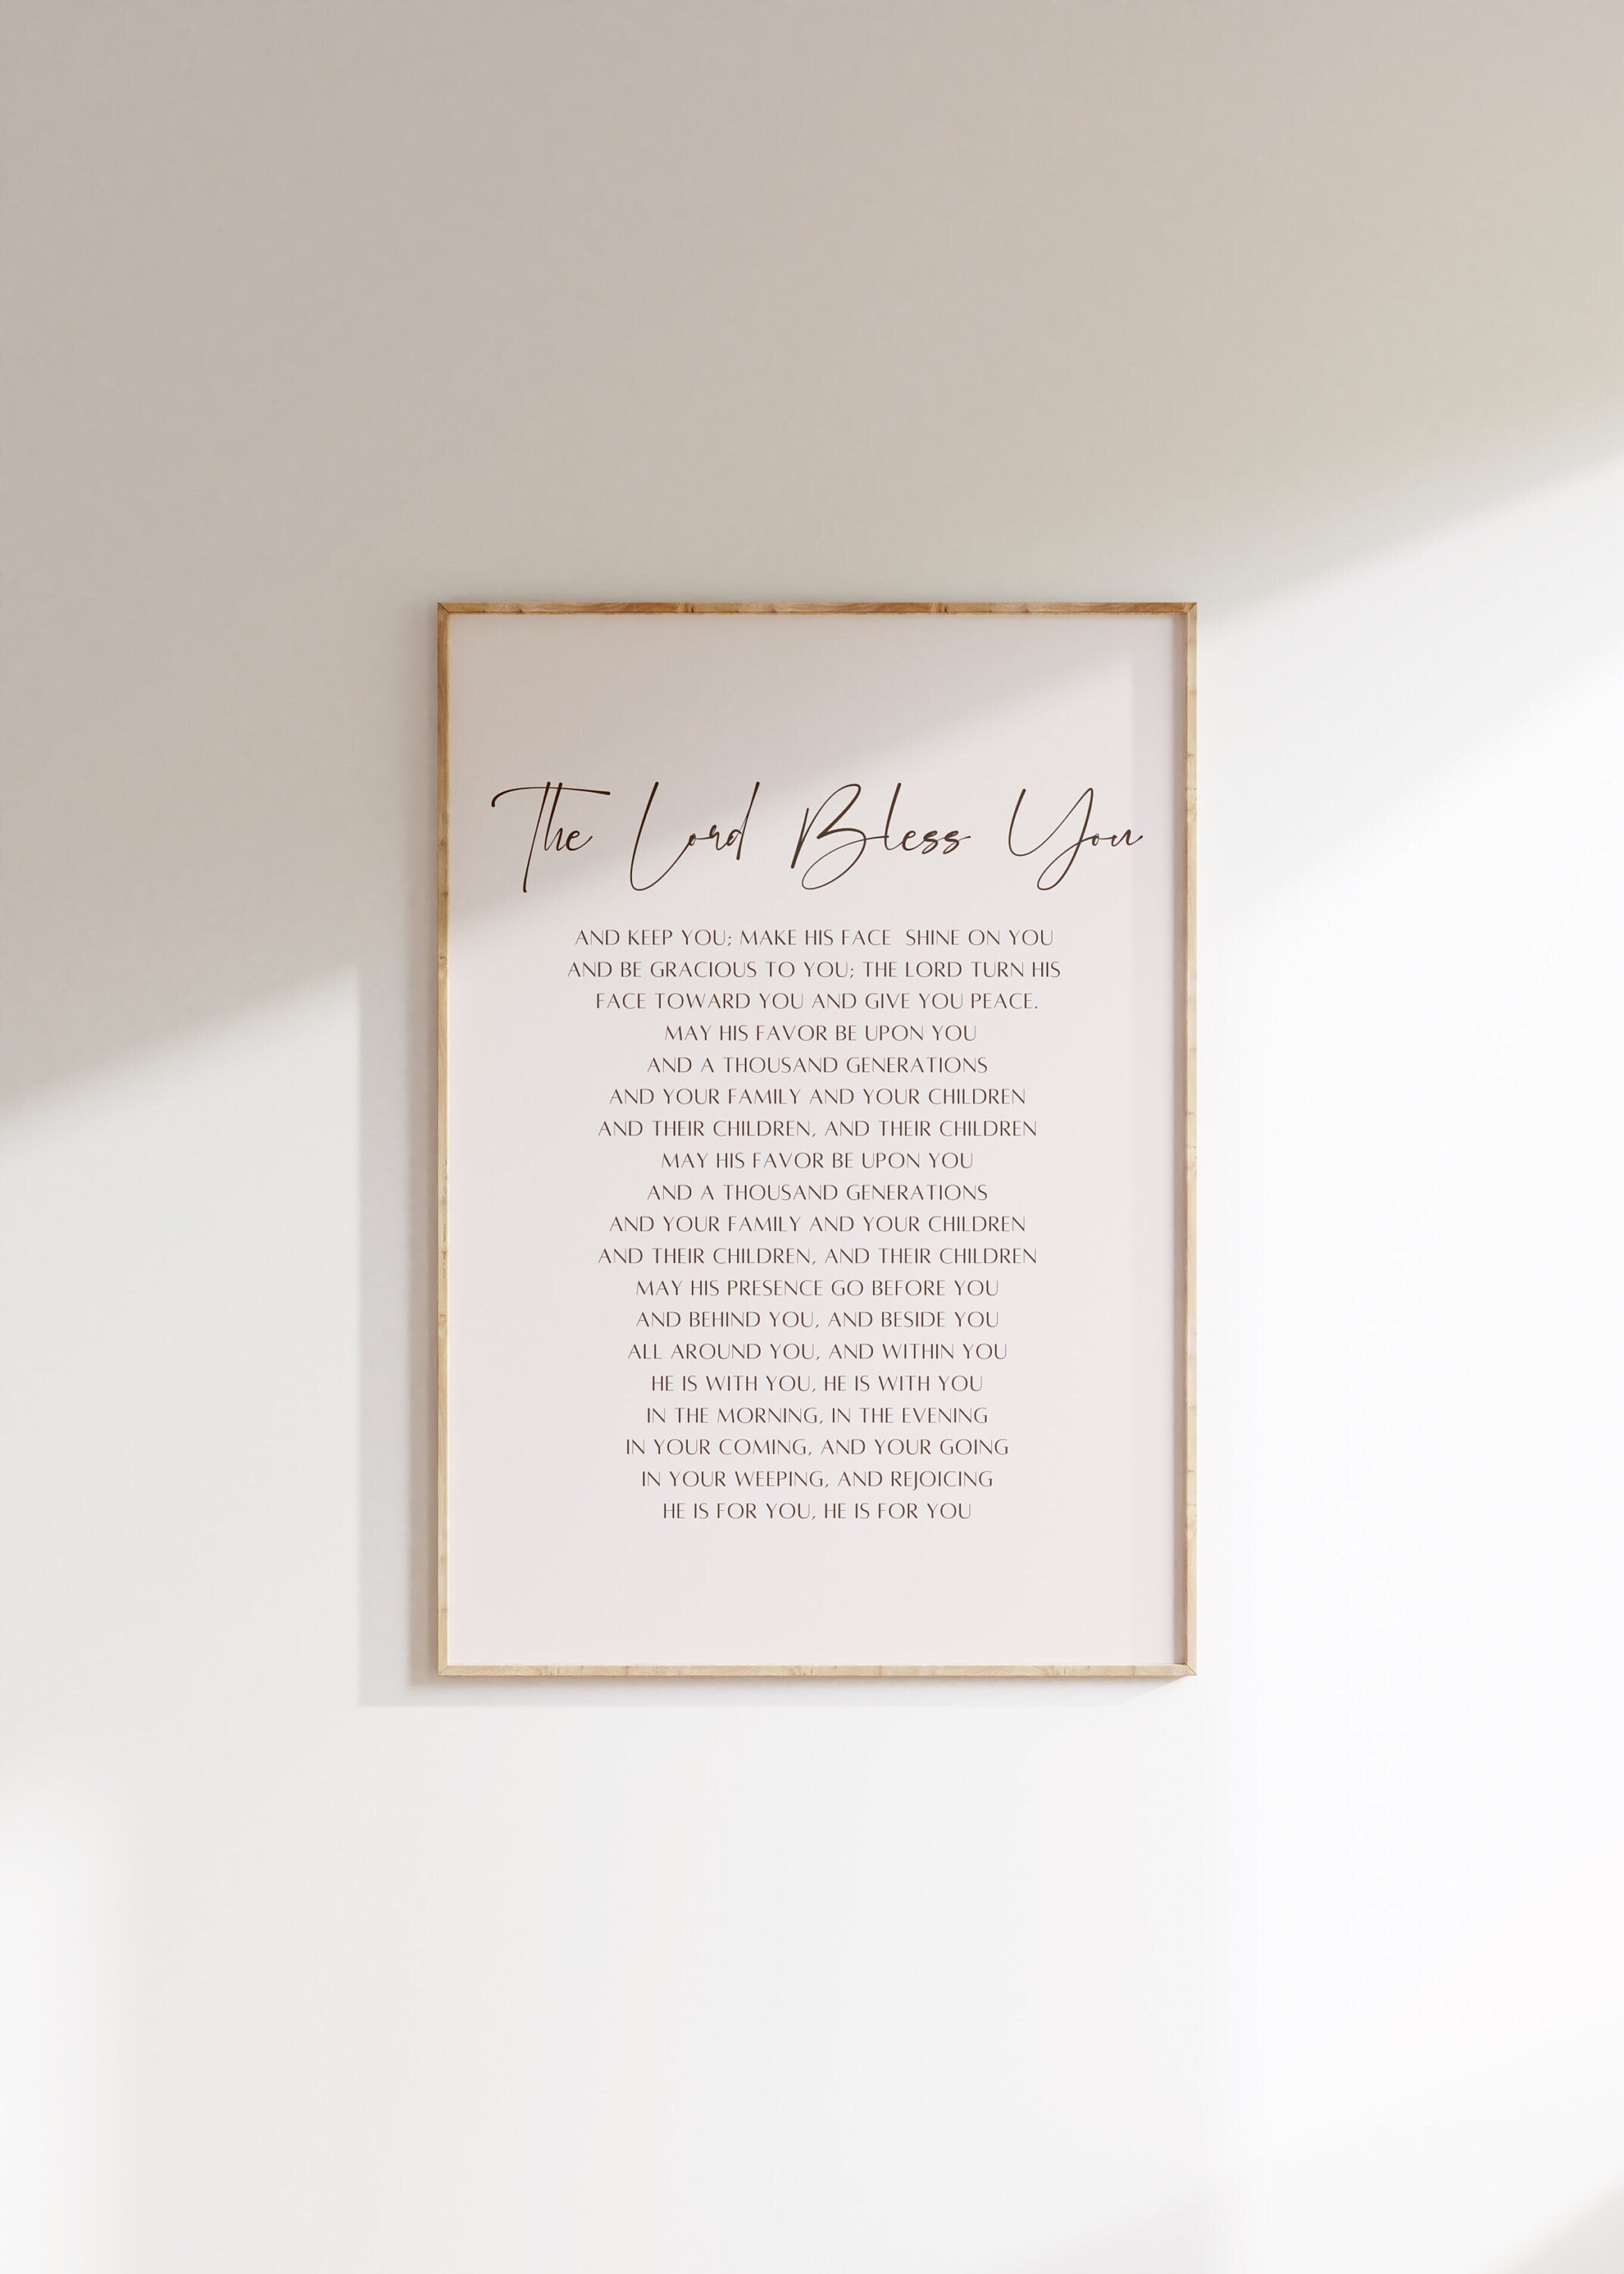 The Lord Bless You
AND KEEP YOU; MAKE HIS FACE SHINE ON YOU
AND BE GRACIOUS TO YOU; THE LORD TURN HIS
FACE TOWARD YOU AND GIVE YOU PEACE.
MAY HIS FAVOR BE UPON YOU
AND A THOUSAND GENERATIONS
AND YOUR FAMILY AND YOUR CHILDREN
AND THEIR CHILDREN, AND THEIR CHILDREN
MAY HIS FAVOR BE UPON YOU
AND A THOUSAND GENERATIONS
AND YOUR FAMILY AND YOUR CHILDREN
AND THEIR CHILDREN, AND THEIR CHILDREN
MAY HIS PRESENCE GO BEFORE YOU
AND BEHIND YOU, AND BESIDE YOU
ALL AROUND YOU, AND WITHIN YOU
HE IS WITH YOU, HE IS WITH YOU
IN THE MORNING, IN THE EVENING
IN YOUR COMING, AND YOUR GOING
IN YOUR WEEPING, AND REJOICING
HE IS FOR YOU, HE IS FOR YOU